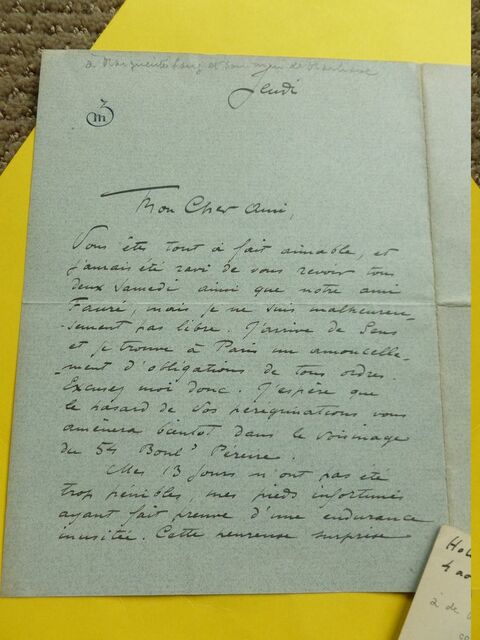 à Marguerite Long et
Jeudi
m
Mon Cher Ami,
Vous êtes tout à fait aimable, et
j'aurais été ravi de vous revoir tous
deux Samedi ainsi que notre ami
Fauré, mais je ne suis malheureu-
-sement pas libre. J'arrive de Sens
et je trouve à Paris un amoncelle-
-ment d'obligations de tous ordres.
Excusez moi donc. J'espère que
le hasard de vos peregrinations vous
amènera bientôt dans le voisinage
du 54 Boulᵈ Péreire.
Mes 13 jours n'ont pas été
trop pénibles, mes pieds infortunés
ayant fait preuve d'une endurance
inusitée. Cette heureuse surprise
4 ao
à de